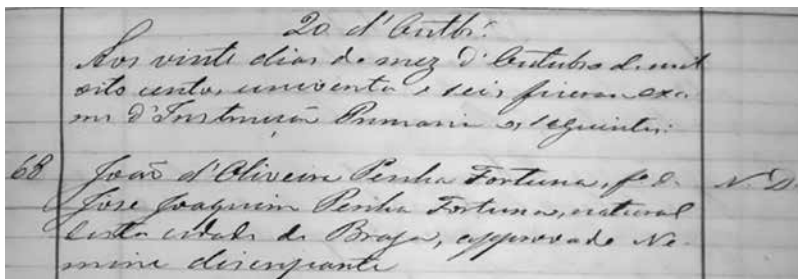 20 d'Outbr.º
Aos vinte dias do mez d'Outubro de mil
oito centos cincoenta e seis fizeram exa-
me d'Instrucção Primaria os seguintes:
68 João d'Oliveira Penha Fortuna, f.º de N. D.
José Joaquim Penha Fortuna, natural
desta cidade de Braga, approvado Ne-
mine discrepante